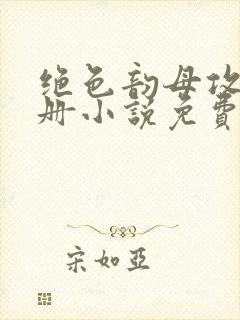 绝色韵母攻
册小说免费
宋如亞